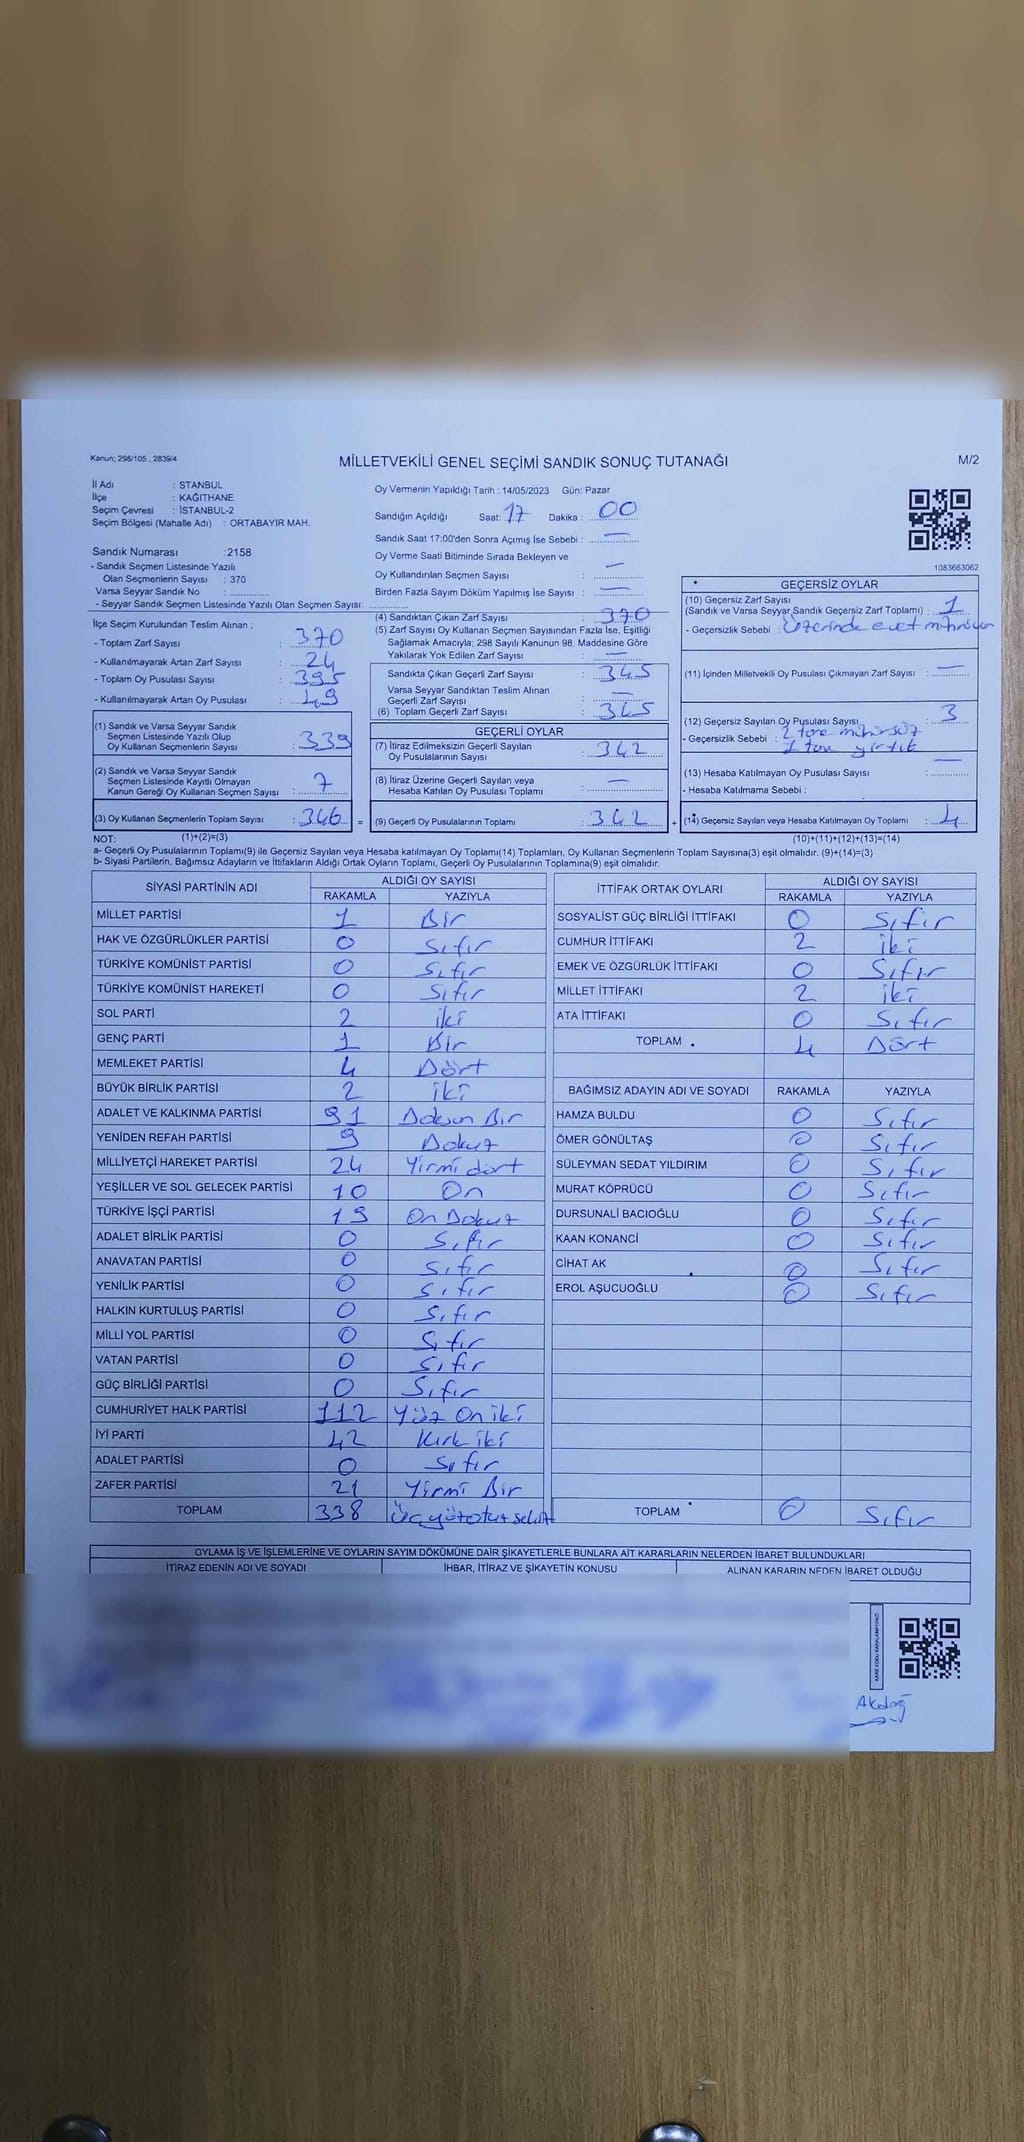 Kanun: 298/105 , 2839/4
MİLLETVEKİLİ GENEL SEÇİMİ SANDIK SONUÇ TUTANAĞI
M/2
İl Adı : İSTANBUL
İlçe : KAĞITHANE
Seçim Çevresi : İSTANBUL-2
Seçim Bölgesi (Mahalle Adı) : ORTABAYIR MAH.
Sandık Numarası :2158
- Sandık Seçmen Listesinde Yazılı
Olan Seçmenlerin Sayısı : 370
Varsa Seyyar Sandık No :
- Seyyar Sandık Seçmen Listesinde Yazılı Olan Seçmen Sayısı:
Oy Vermenin Yapıldığı Tarih : 14/05/2023 Gün: Pazar
Sandığın Açıldığı Saat: 17 Dakika : 00
Sandık Saat 17:00'den Sonra Açımış İse Sebebi : —
Oy Verme Saati Bitiminde Sırada Bekleyen ve
Oy Kullandırılan Seçmen Sayısı : —
Birden Fazla Sayım Döküm Yapılmış İse Sayısı : —
1083663062
İlçe Seçim Kurulundan Teslim Alınan :
- Toplam Zarf Sayısı : 370
- Kullanılmayarak Artan Zarf Sayısı : 24
- Toplam Oy Pusulası Sayısı : 395
- Kullanılmayarak Artan Oy Pusulası : 49
(1) Sandık ve Varsa Seyyar Sandık
Seçmen Listesinde Yazılı Olup
Oy Kullanan Seçmenlerin Sayısı : 339
(2) Sandık ve Varsa Seyyar Sandık
Seçmen Listesinde Kayıtlı Olmayan
Kanun Gereği Oy Kullanan Seçmen Sayısı : 7
(3) Oy Kullanan Seçmenlerin Toplam Sayısı : 346 =
(4) Sandıktan Çıkan Zarf Sayısı : 370
(5) Zarf Sayısı Oy Kullanan Seçmen Sayısından Fazla İse, Eşitliği
Sağlamak Amacıyla; 298 Sayılı Kanunun 98. Maddesine Göre
Yakılarak Yok Edilen Zarf Sayısı : —
Sandıkta Çıkan Geçerli Zarf Sayısı : 345
Varsa Seyyar Sandıktan Teslim Alınan
Geçerli Zarf Sayısı : —
(6) Toplam Geçerli Zarf Sayısı : 345
GEÇERLİ OYLAR
(7) İtiraz Edilmeksizin Geçerli Sayılan
Oy Pusulalarının Sayısı : 342
(8) İtiraz Üzerine Geçerli Sayılan veya
Hesaba Katılan Oy Pusulası Toplamı : —
(9) Geçerli Oy Pusulalarının Toplamı : 342 +
GEÇERSİZ OYLAR
(10) Geçersiz Zarf Sayısı
(Sandık ve Varsa Seyyar Sandık Geçersiz Zarf Toplamı) : 1
- Geçersizlik Sebebi : Üzerinde evet
(11) İçinden Milletvekili Oy Pusulası Çıkmayan Zarf Sayısı : —
(12) Geçersiz Sayılan Oy Pusulası Sayısı : 3
- Geçersizlik Sebebi : 2 tore mühürsüz
1 tore yırtık
(13) Hesaba Katılmayan Oy Pusulası Sayısı : —
- Hesaba Katılmama Sebebi :
(14) Geçersiz Sayılan veya Hesaba Katılmayan Oy Toplamı : 4
NOT: (1)+(2)=(3) (10)+(11)+(12)+(13)=(14)
a- Geçerli Oy Pusulalarının Toplamı(9) ile Geçersiz Sayılan veya Hesaba katılmayan Oy Toplamı(14) Toplamları, Oy Kullanan Seçmenlerin Toplam Sayısına(3) eşit olmalıdır. (9)+(14)=(3)
b- Siyasi Partilerin, Bağımsız Adayların ve İttifakların Aldığı Ortak Oyların Toplamı, Geçerli Oy Pusulalarının Toplamına(9) eşit olmalıdır.
SİYASİ PARTİNİN ADI ALDIĞI OY SAYISI
RAKAMLA YAZIYLA
MİLLET PARTİSİ 1 Bir
HAK VE ÖZGÜRLÜKLER PARTİSİ 0 Sıfır
TÜRKİYE KOMÜNİST PARTİSİ 0 Sıfır
TÜRKİYE KOMÜNİST HAREKETİ 0 Sıfır
SOL PARTİ 2 iki
GENÇ PARTİ 1 Bir
MEMLEKET PARTİSİ 4 Dört
BÜYÜK BİRLİK PARTİSİ 2 iki
ADALET VE KALKINMA PARTİSİ 91 Doksan Bir
YENİDEN REFAH PARTİSİ 9 Dokuz
MİLLİYETÇİ HAREKET PARTİSİ 24 Yirmi dört
YEŞİLLER VE SOL GELECEK PARTİSİ 10 On
TÜRKİYE İŞÇİ PARTİSİ 19 On Dokuz
ADALET BİRLİK PARTİSİ 0 Sıfır
ANAVATAN PARTİSİ 0 Sıfır
YENİLİK PARTİSİ 0 Sıfır
HALKIN KURTULUŞ PARTİSİ 0 Sıfır
MİLLİ YOL PARTİSİ 0 Sıfır
VATAN PARTİSİ 0 Sıfır
GÜÇ BİRLİĞİ PARTİSİ 0 Sıfır
CUMHURİYET HALK PARTİSİ 112 Yüz On iki
İYİ PARTİ 42 Kırk iki
ADALET PARTİSİ 0 Sıfır
ZAFER PARTİSİ 21 Yirmi Bir
TOPLAM 338 Üçyüzotuz sekiz
İTTİFAK ORTAK OYLARI ALDIĞI OY SAYISI
RAKAMLA YAZIYLA
SOSYALİST GÜÇ BİRLİĞİ İTTİFAKI 0 Sıfır
CUMHUR İTTİFAKI 2 iki
EMEK VE ÖZGÜRLÜK İTTİFAKI 0 Sıfır
MİLLET İTTİFAKI 2 iki
ATA İTTİFAKI 0 Sıfır
TOPLAM 4 Dört
BAĞIMSIZ ADAYIN ADI VE SOYADI RAKAMLA YAZIYLA
HAMZA BULDU 0 Sıfır
ÖMER GÖNÜLTAŞ 0 Sıfır
SÜLEYMAN SEDAT YILDIRIM 0 Sıfır
MURAT KÖPRÜCÜ 0 Sıfır
DURSUNALİ BACIOĞLU 0 Sıfır
KAAN KONANCİ 0 Sıfır
CİHAT AK 0 Sıfır
EROL AŞUCUOĞLU 0 Sıfır
TOPLAM 0 Sıfır
OYLAMA İŞ VE İŞLEMLERİNE VE OYLARIN SAYIM DÖKÜMÜNE DAİR ŞİKAYETLERLE BUNLARA AİT KARARLARIN NELERDEN İBARET BULUNDUKLARI
İTİRAZ EDENİN ADI VE SOYADI İHBAR, İTİRAZ VE ŞİKAYETİN KONUSU ALINAN KARARIN NEDEN İBARET OLDUĞU
Akdağ